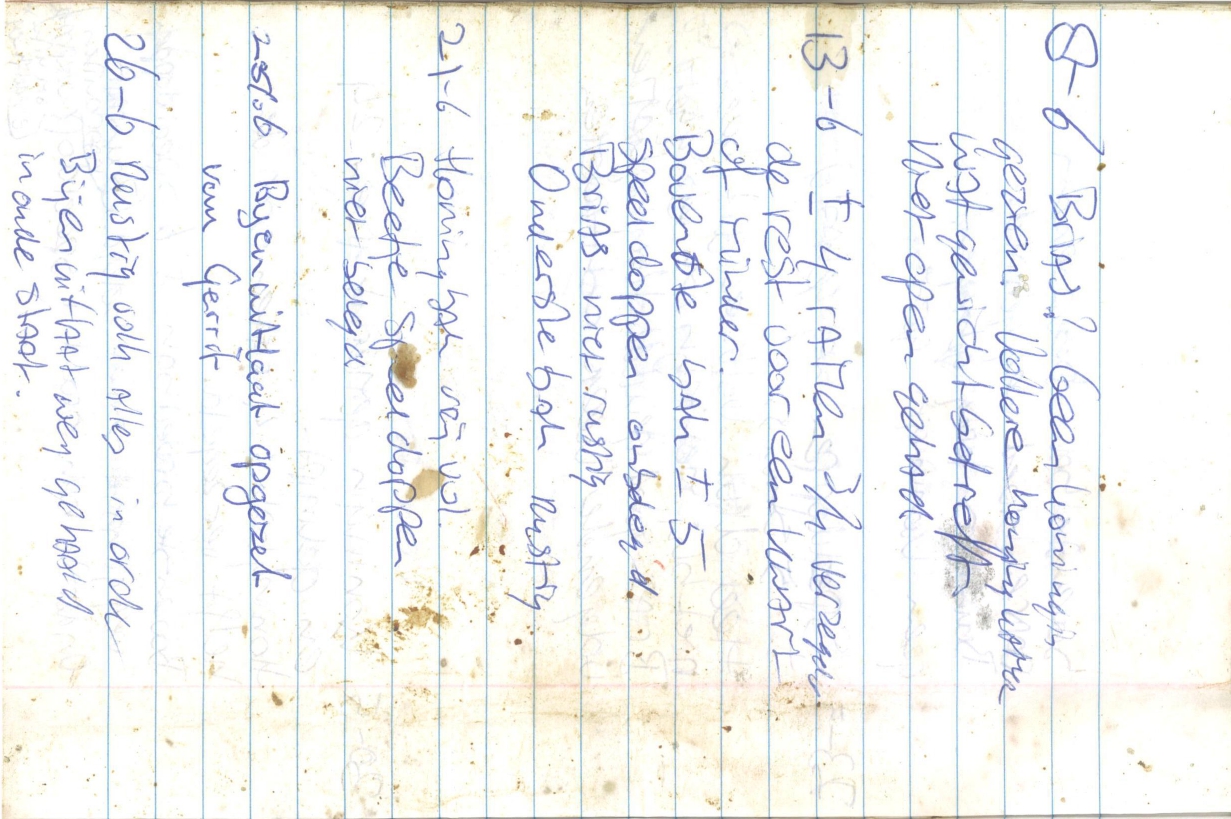 8-6 Brias? Geen honing in
gezien. Vollere honingkamer
wat gewicht betreft.
Niet open gehad
13-6 ± 4 ramen 3/4 verzegeld
de rest voor een kwart
of minder.
Bovenste bak ± 5
speeldoppen onbelegd.
Brias niet rustig
Onderste bak rustig
21-6 Honingbak vrij vol.
Beetje speeldoppen
niet belegd
25-6 Bijenuitlaat opgezet
van Gerrit
26-6 Rustig volk alles in orde
Bijenuitlaat weg gehaald
in orde staat.